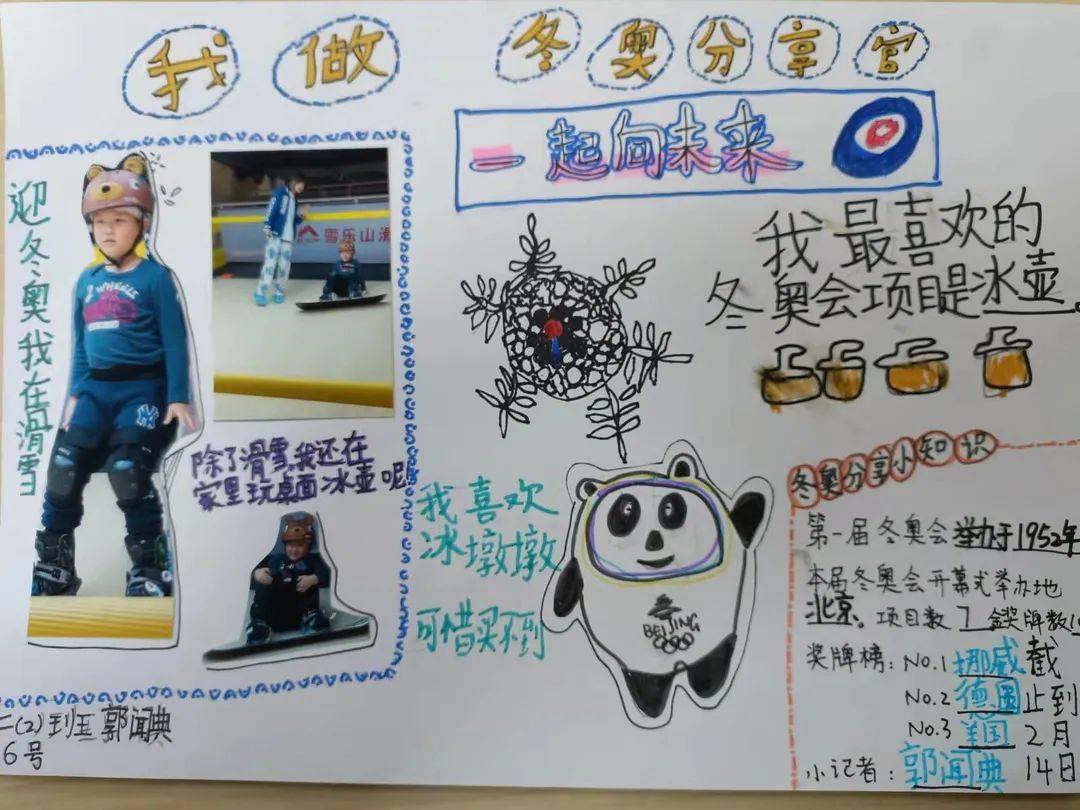 我做
冬奥分享官
一起向未来
迎冬奥我在滑雪
雪乐山滑
除了滑雪,我还在
家里玩桌面冰壶呢
我最喜欢的
冬奥会项目是冰壶。
我喜欢
冰墩墩
可惜买不到
BEIJING
冬奥分享小知识
第一届冬奥会举办于1952年
本届冬奥会开幕式举办地
北京。项目数 7 金奖牌数
奖牌榜: No.1 挪威 截
No.2 德国 止到
No.3 美国 2月
小记者: 郭闻典 14日
二(2)班 郭闻典
6号
WHEELS
NY